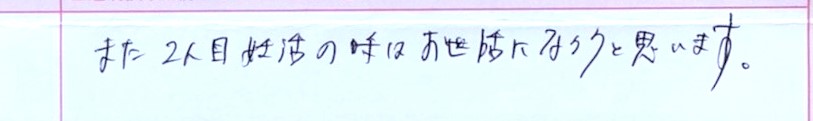 また2人目妊活の時はお世話になろうと思います。